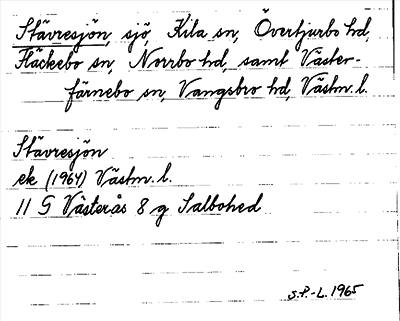 Stävresjön, sjö, Kila sn, Övertjurbo hd,
Fläckebo sn, Norrbo hd, samt Väster-
färnebo sn, Vangsbro hd, Västm. l.
Stävresjön
ek (1964) Västm. l.
11 G Västerås 8 g Salbohed
S.P.-L. 1965